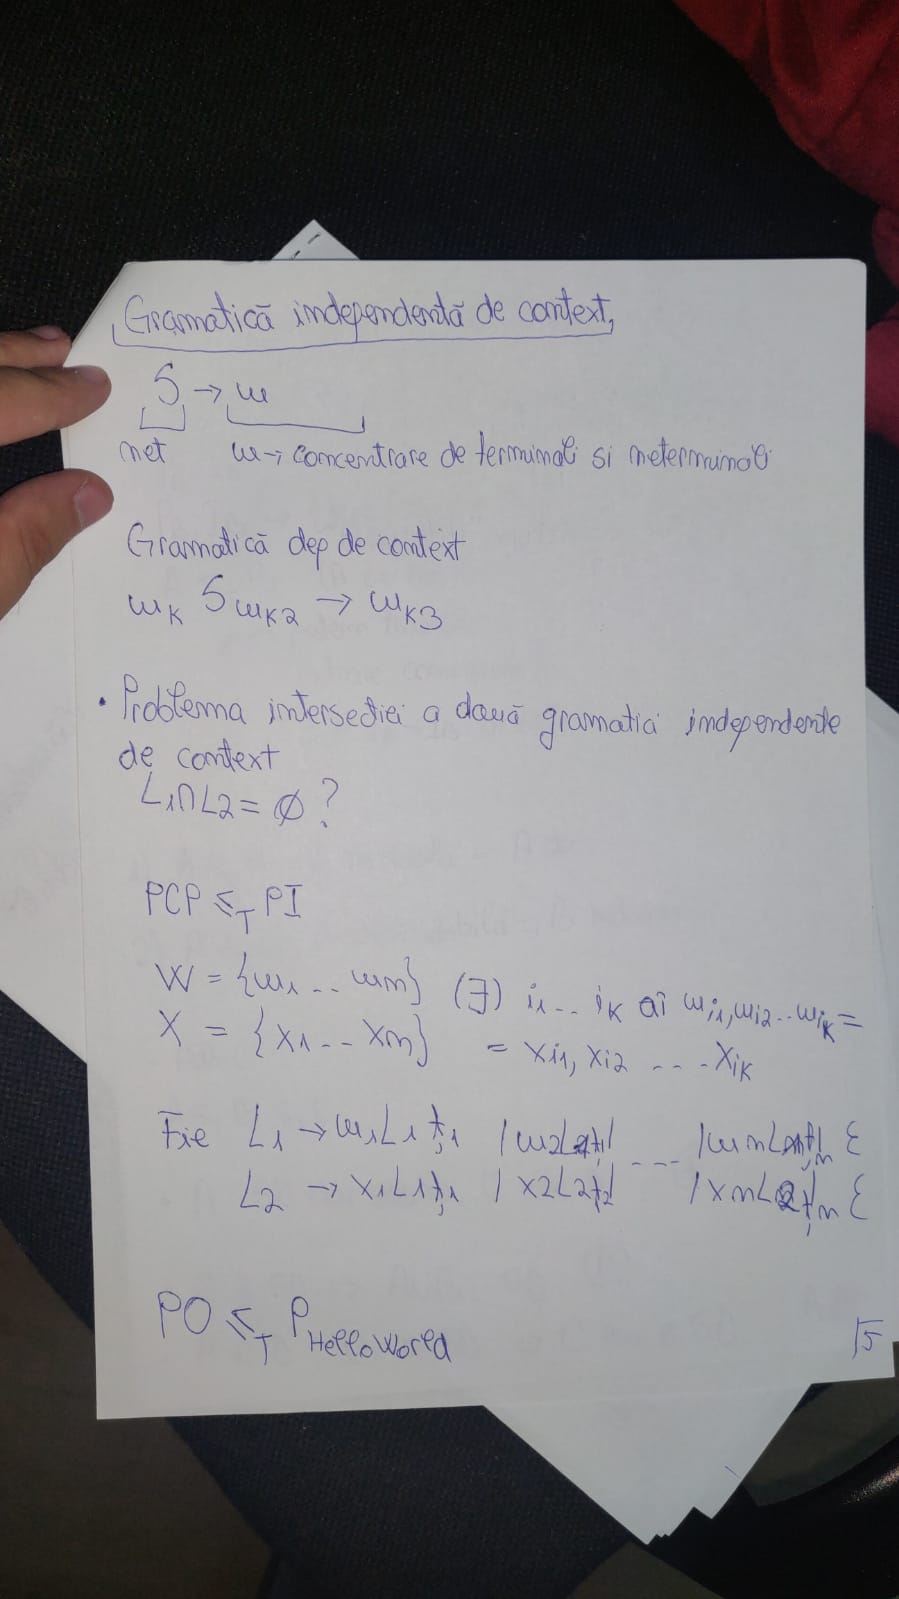 Gramatică independentă de context,
S → w
net w → concentrare de terminali si neterminali
Gramatică dep de context
wK S wK2 → wK3
• Problema intersecției a două gramatici independente
de context
L1∩L2 = ∅ ?
PCP ≤T PI
W = {w1 .. wn} (∃) i1 .. iK aî wi1, wi2 .. wiK =
X = {x1 .. xn} = xi1, xi2 .... xiK
Fie L1 → w1L1ț1 / w2L ... / wnL ... ε
L2 → x1L1ț1 / x2L2ț2 / xnL2țn ε
PO ≤T P HelloWorld
15